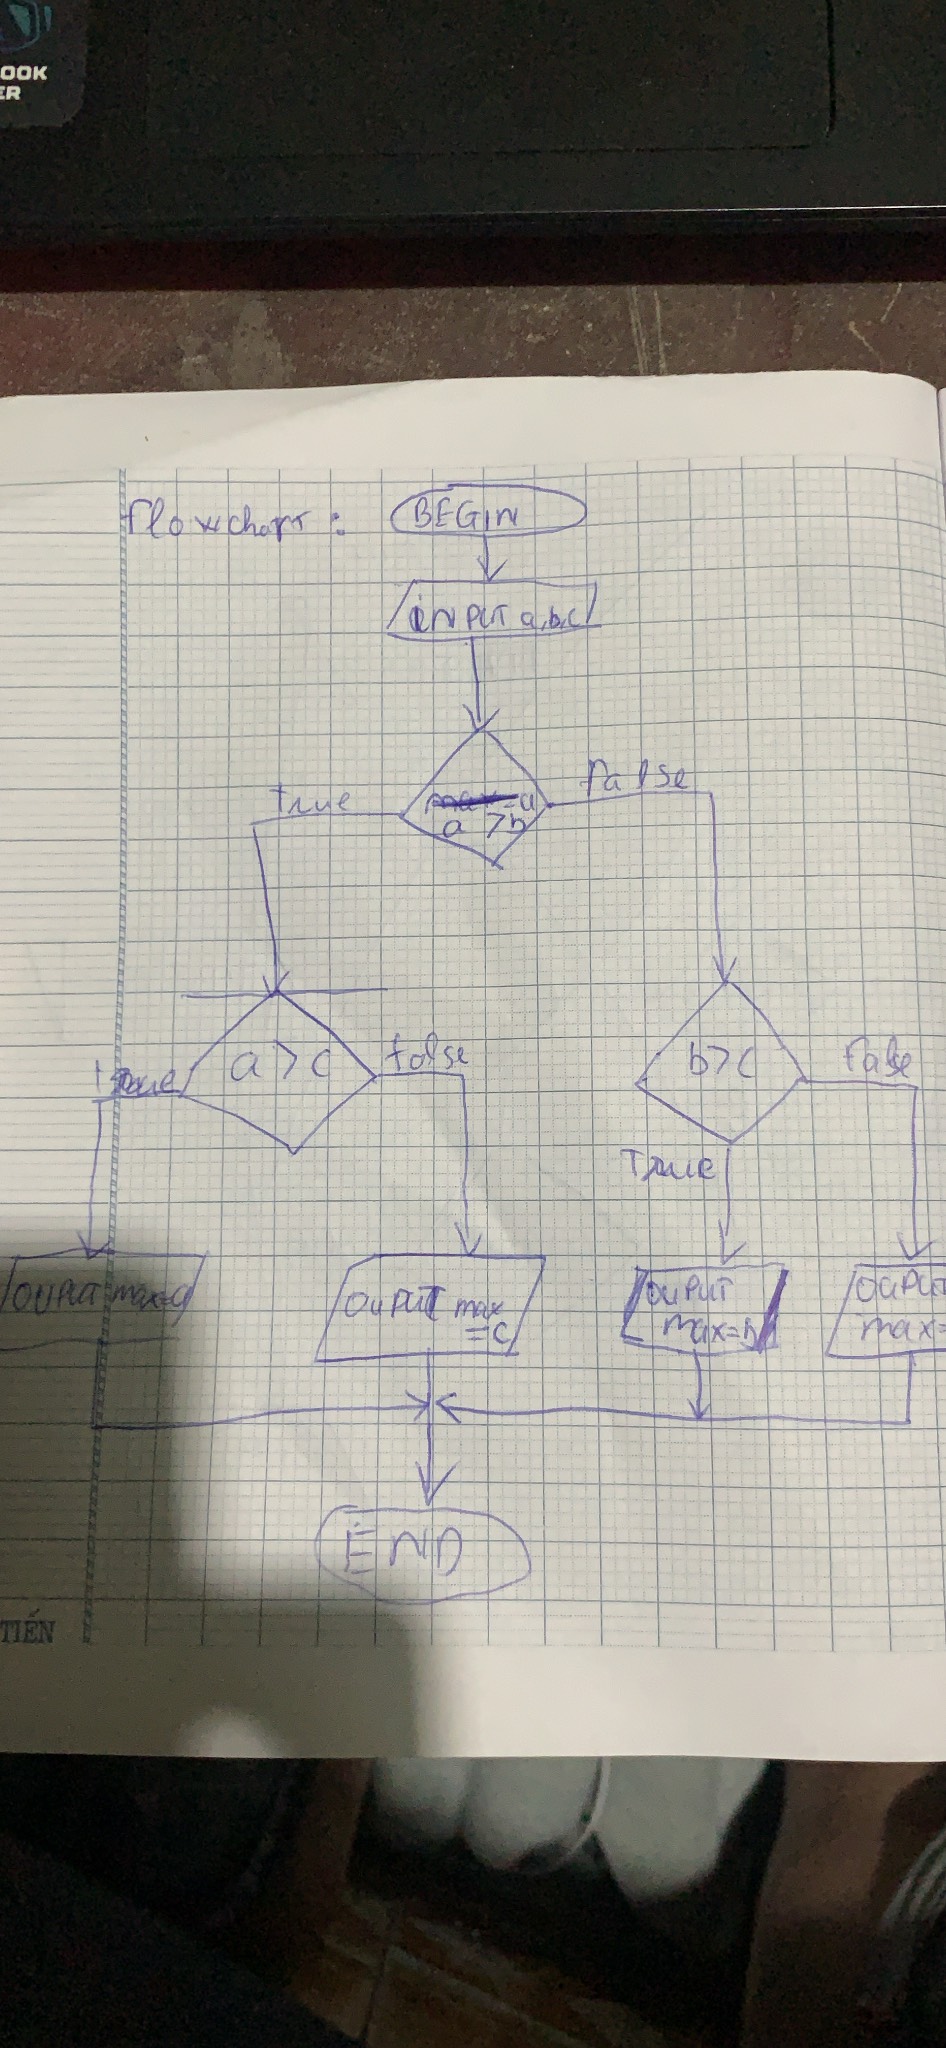 OOK
ER
Flowchart: BEGIN
INPUT a,b,c
true
false
a > b
a > c
false
true
b>c
False
True
OUPUT max=a
OUPUT max
=c
OUPUT
max=b
OUPUT
max=
END
TIẾN